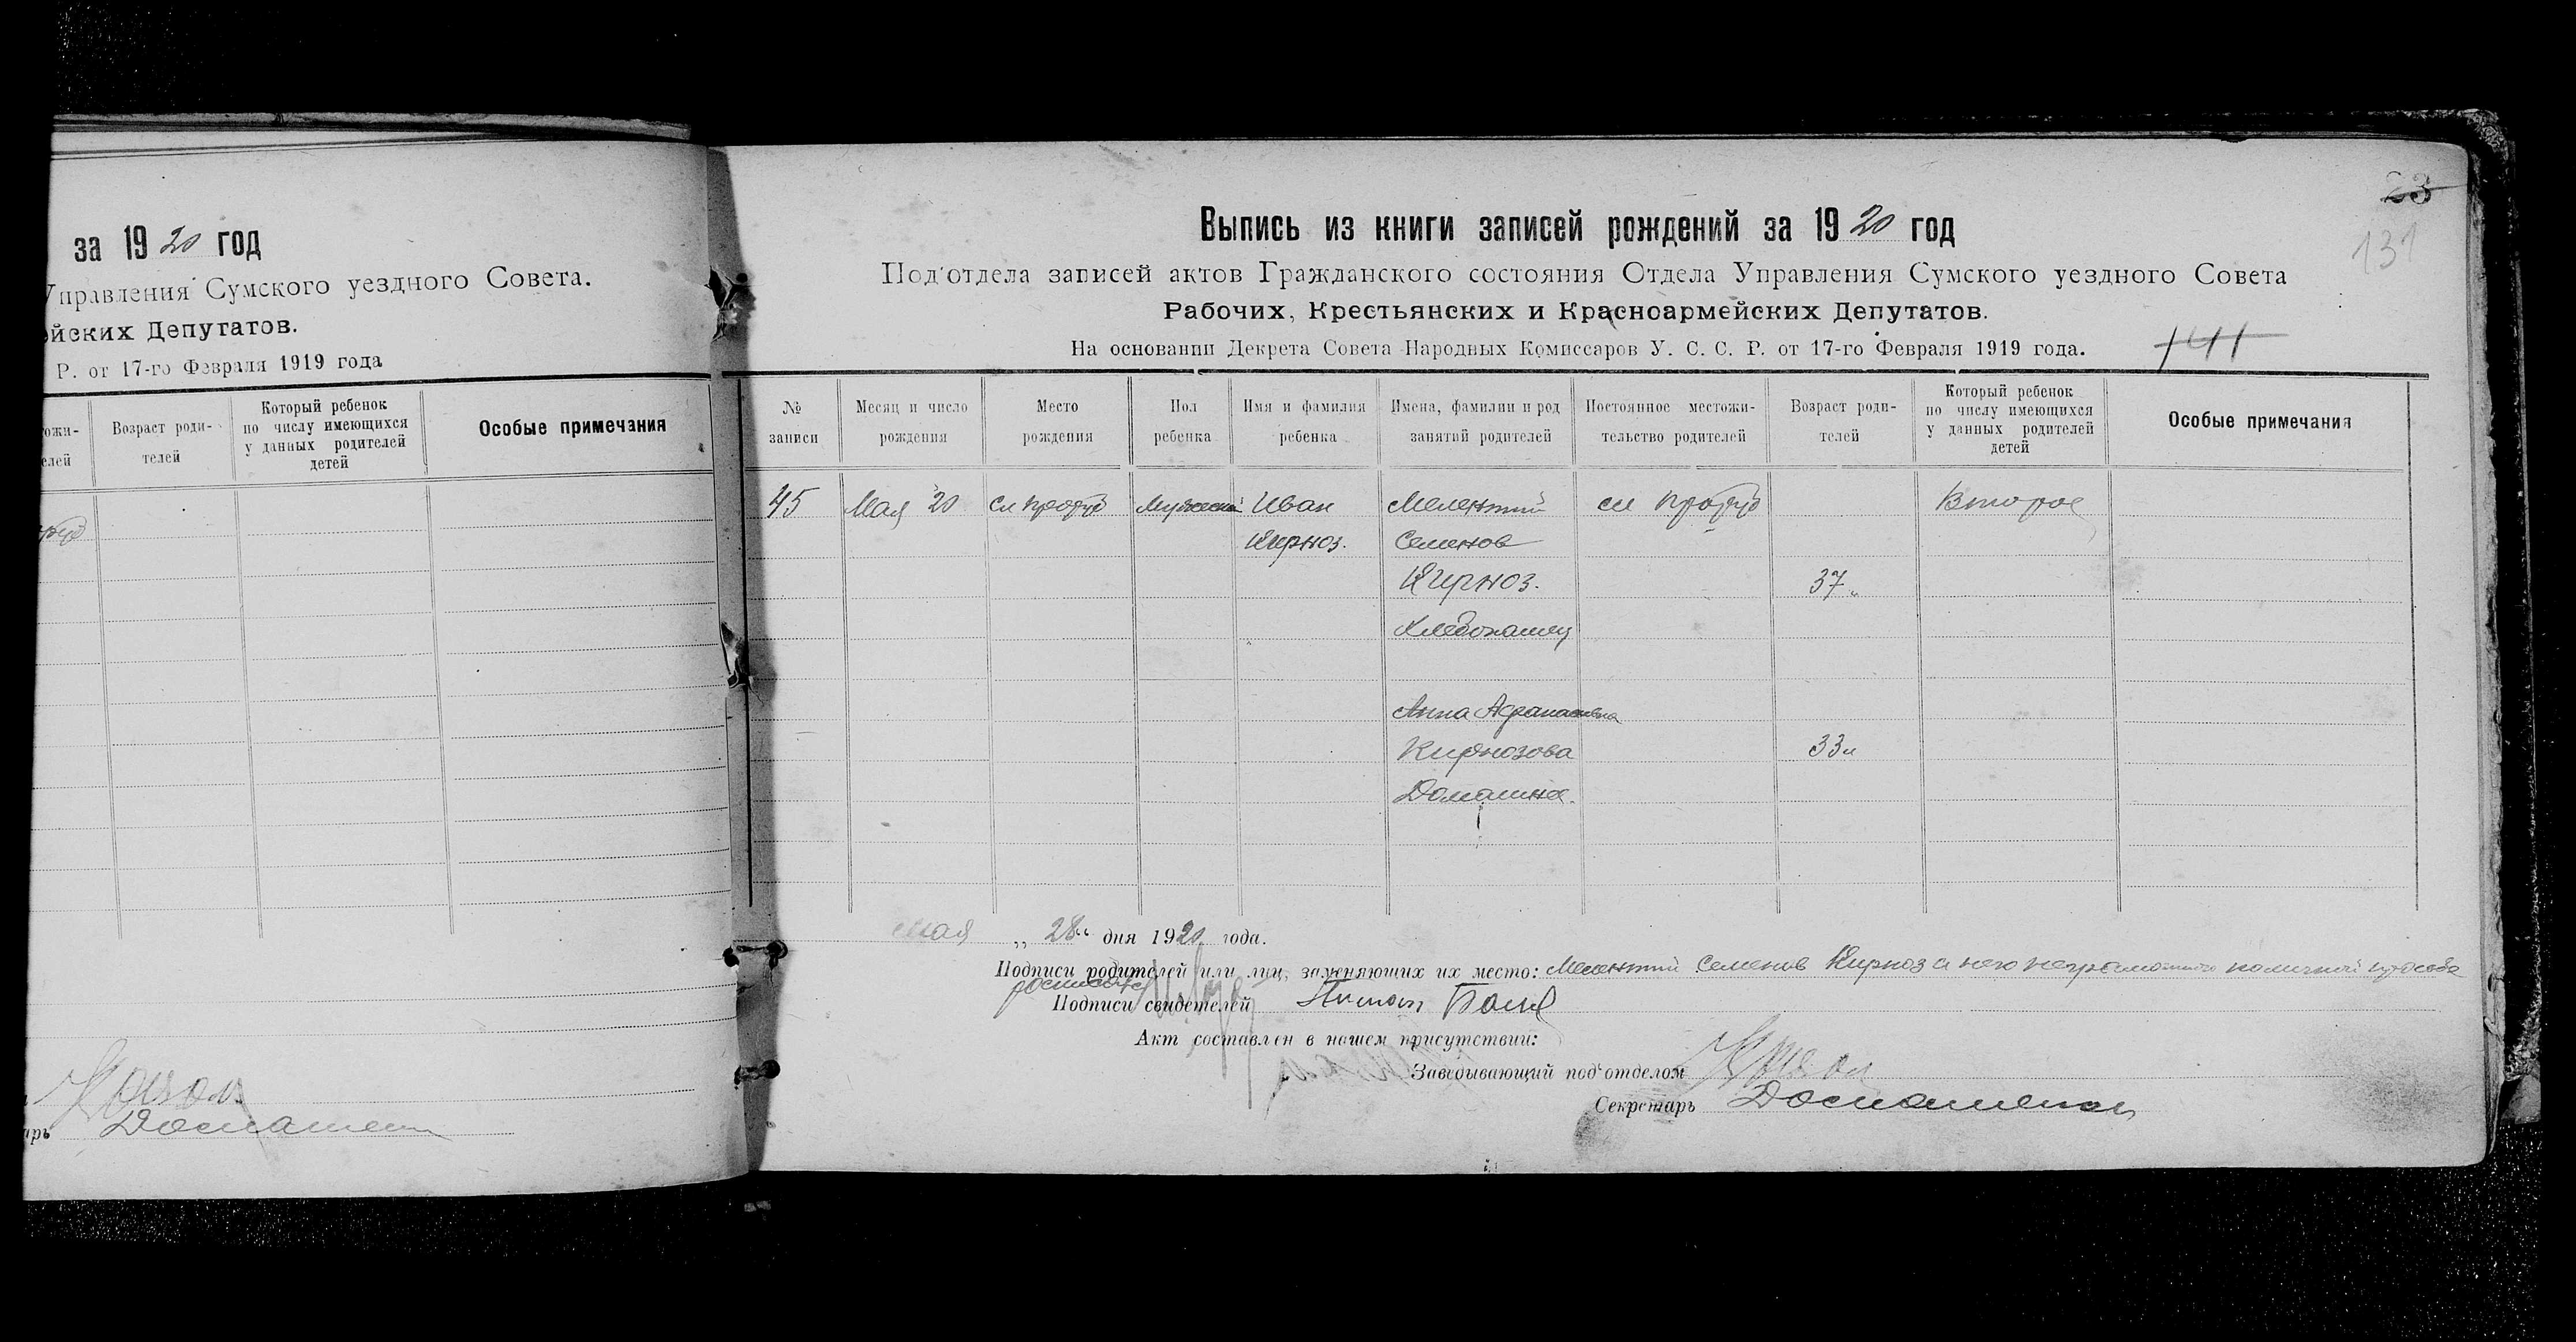 за 1920 год
Управления Сумского уездного Совета.
ейских Депутатов.
Р. от 17-го Февраля 1919 года
Возраст роди-
телей
Который ребенок
по числу имеющихся
у данных родителей
детей
Особые примечания
23
131
141
Выпись из книги записей рождений за 1920 год
Под'отдела записей актов Гражданского состояния Отдела Управления Сумского уездного Совета
Рабочих, Крестьянских и Красноармейских Депутатов.
На основании Декрета Совета Народных Комиссаров У. С. С. Р. от 17-го Февраля 1919 года.
№
записи
Месяц и число
рождения
Место
рождения
Пол
ребенка
Имя и фамилия
ребенка
Имена, фамилии и род
занятий родителей
Постоянное местожи-
тельство родителей
Возраст роди-
телей
Который ребенок
по числу имеющихся
у данных родителей
детей
Особые примечания
45 Мая 20 сл Мужеский Иван Мелентий сл Второе
Кирноз. Семенов
Кирноз. 37
Хлебопашец
Анна Афанасьевна
Кирнозова 33
Домашняя.
мая „28“ дня 1920 года.
Подписи родителей или лиц, заменяющих их место: Мелентий Семенов Кирноз а него неграмотного
Подписи свидетелей
Акт составлен в нашем присутствии:
Заведывающий под'отделом
Секретарь